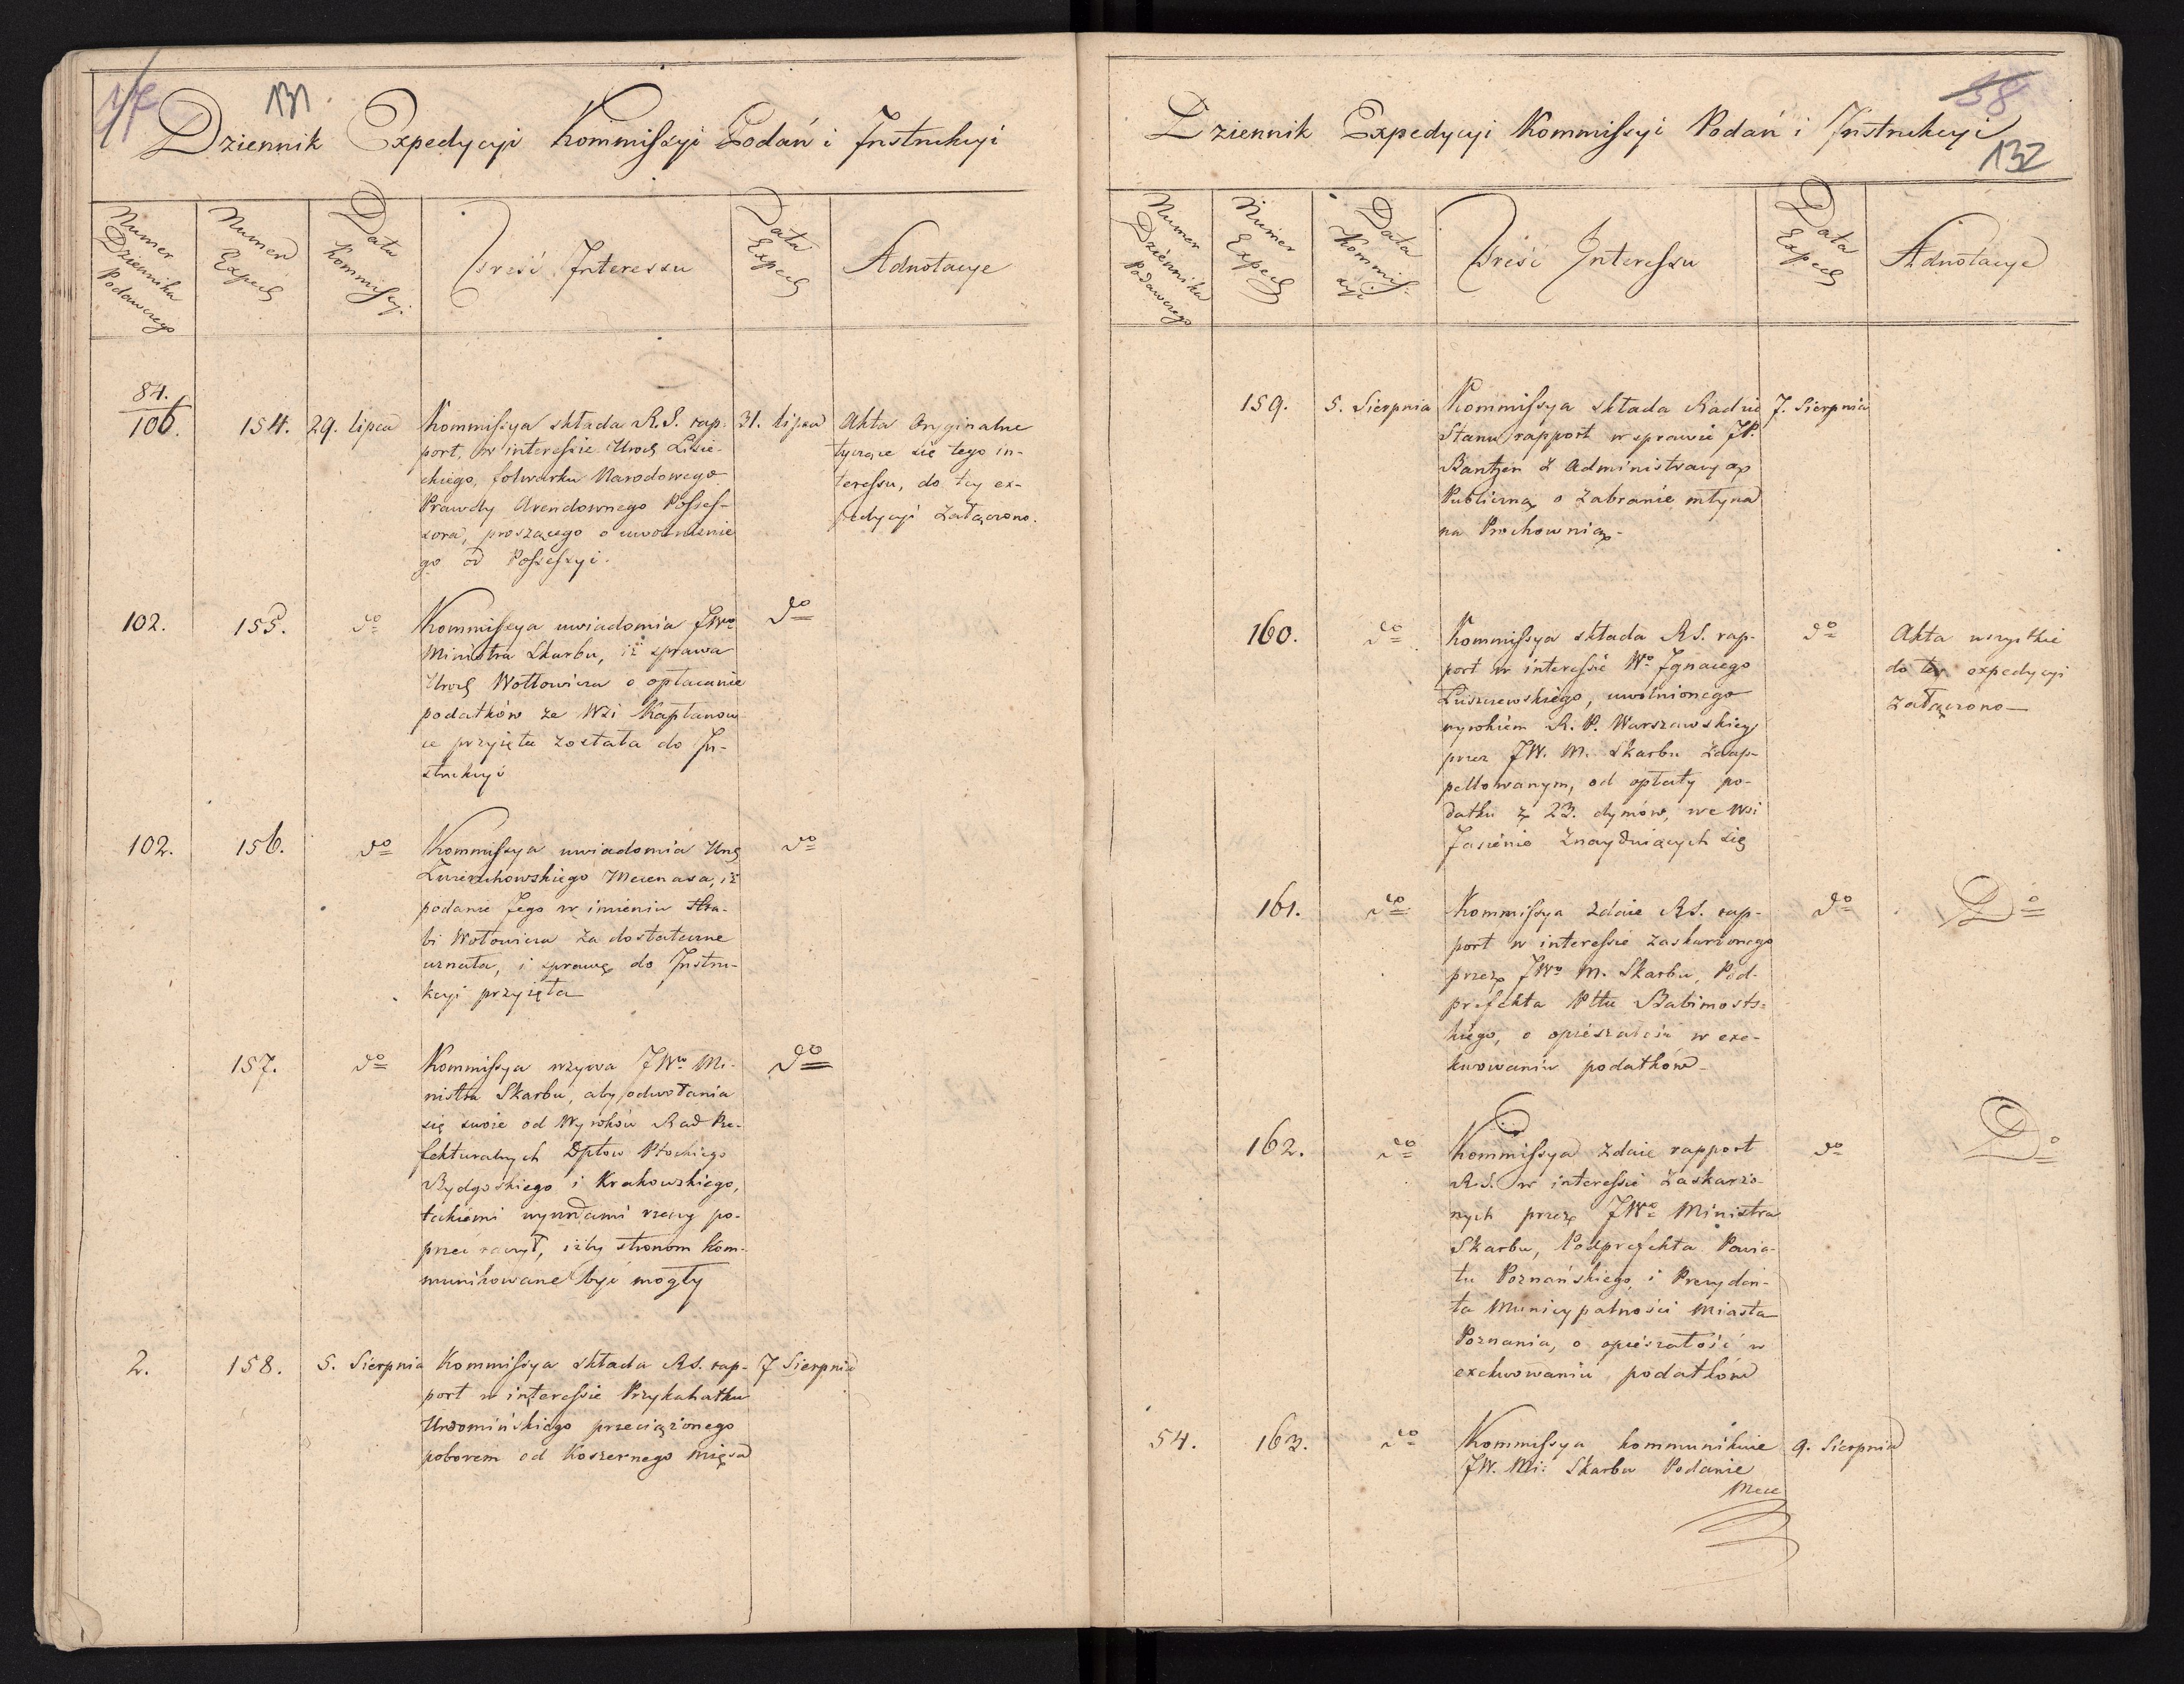 131
Dziennik Expedycyi Kommissyi Podań i Instrukcyi
Numer Dziennika Podawczego
Numer Exped
Data Kommissyi
Treść Interessu
Data Exped
Adnotacye
84.
106. 154. 29. lipca Kommissya składa R.S. rap- 31. lipca Akta Oryginalne
port, w interessie Urodz Lisie- tyczące się tego in-
ckiego, folwarku Narodowego teressu, do tey ex-
Prawdy Arendownego Posses- pedycyi załączono.
sora, proszącego o uwolnienie
go od Possessyi.
102. 155. do Kommissya uwiadomia JWo do
Ministra Skarbu, iż sprawa
Urodz Wołłowicza o opłacanie
podatków ze Wsi Kapłanow-
ce przyięta została do In-
strukcyi
102. 156. do Kommissya uwiadomia Uro do
Mecenasa, iż
podanie Jego w imieniu Hra-
bi Wołowicza za dostateczne
uznała, i sprawę do Instru-
kcyi przyięła
157. do Kommissya wzywa JWo Mi- do
nistra Skarbu, aby odwołania
się swoie od Wyroków Rad Pre-
fekturalnych Dptow Płockiego
Bydgoskiego i Krakowskiego,
takiemi wywodami rzeczy po-
przeć raczył, iżby stronom kom-
munikowane być mogły
2. 158. 5. Sierpnia Kommissya składa R.S. rap- 7 Sierpnia
port w interessie Przykahałku
Urdomińskiego przeciążonego
poborem od Koszernego mięsa
58
132
Dziennik Expedycyi Kommissyi Podań i Instrukcyi
Numer Dziennika Podawczego
Numer Exped
Data Kommissyi
Treść Interessu
Data Exped
Adnotacye
159. 5. Sierpnia Kommissya składa Radzie 7. Sierpnia
Stanu rapport w sprawie JP.
Bantzen z Administracyą
Publiczną o zabranie młyna
na Prochownią.
160. do Kommissya składa R.S. rap- do Akta wszystkie
port w interessie Wo Ignacego do tey expedycyi
Luszczewskiego, uwolnionego załączono
wyrokiem R. P. Warszawskiey
przez JW. M. Skarbu zaap-
pellowanym, od opłaty po-
datku z 23. dymów, we Wsi
Jasienie znayduiących się
161. do Kommissya zdaie R.S. rap- do Do
port w interessie zaskarżonego
przez JWo M. Skarbu, Pod-
prefekta Pttu Babimosts-
kiego, o opieszałość w exe-
kwowaniu podatków
162. do Kommissya zdaie rapport do Do
R.S. w interessie zaskarżo-
nych przez JWo Ministra
Skarbu, Podprefekta Powia-
tu Poznańskiego i Prezyden-
ta Municypalności Miasta
Poznania, o opieszałość w
exekwowaniu podatków
54. 163. do Kommissya kommunikuie 9. Sierpnia
JW. Mi: Skarbu Podanie
Mece